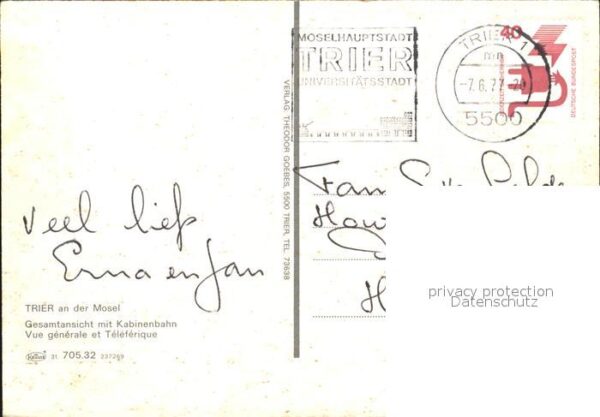 MOSELHAUPTSTADT
TRIER
UNIVERSITÄTSSTADT
TRIER 1
mn
-7.6.77-20
5500
40
DEUTSCHE BUNDESPOST
VERLAG THEODOR GOEBES, 5500 TRIER, TEL. 73638
Veel liefs
Erna en Jan
Fam
H
privacy protection
Datenschutz
TRIER an der Mosel
Gesamtansicht mit Kabinenbahn
Vue générale et Téléférique
31 705.32 237269